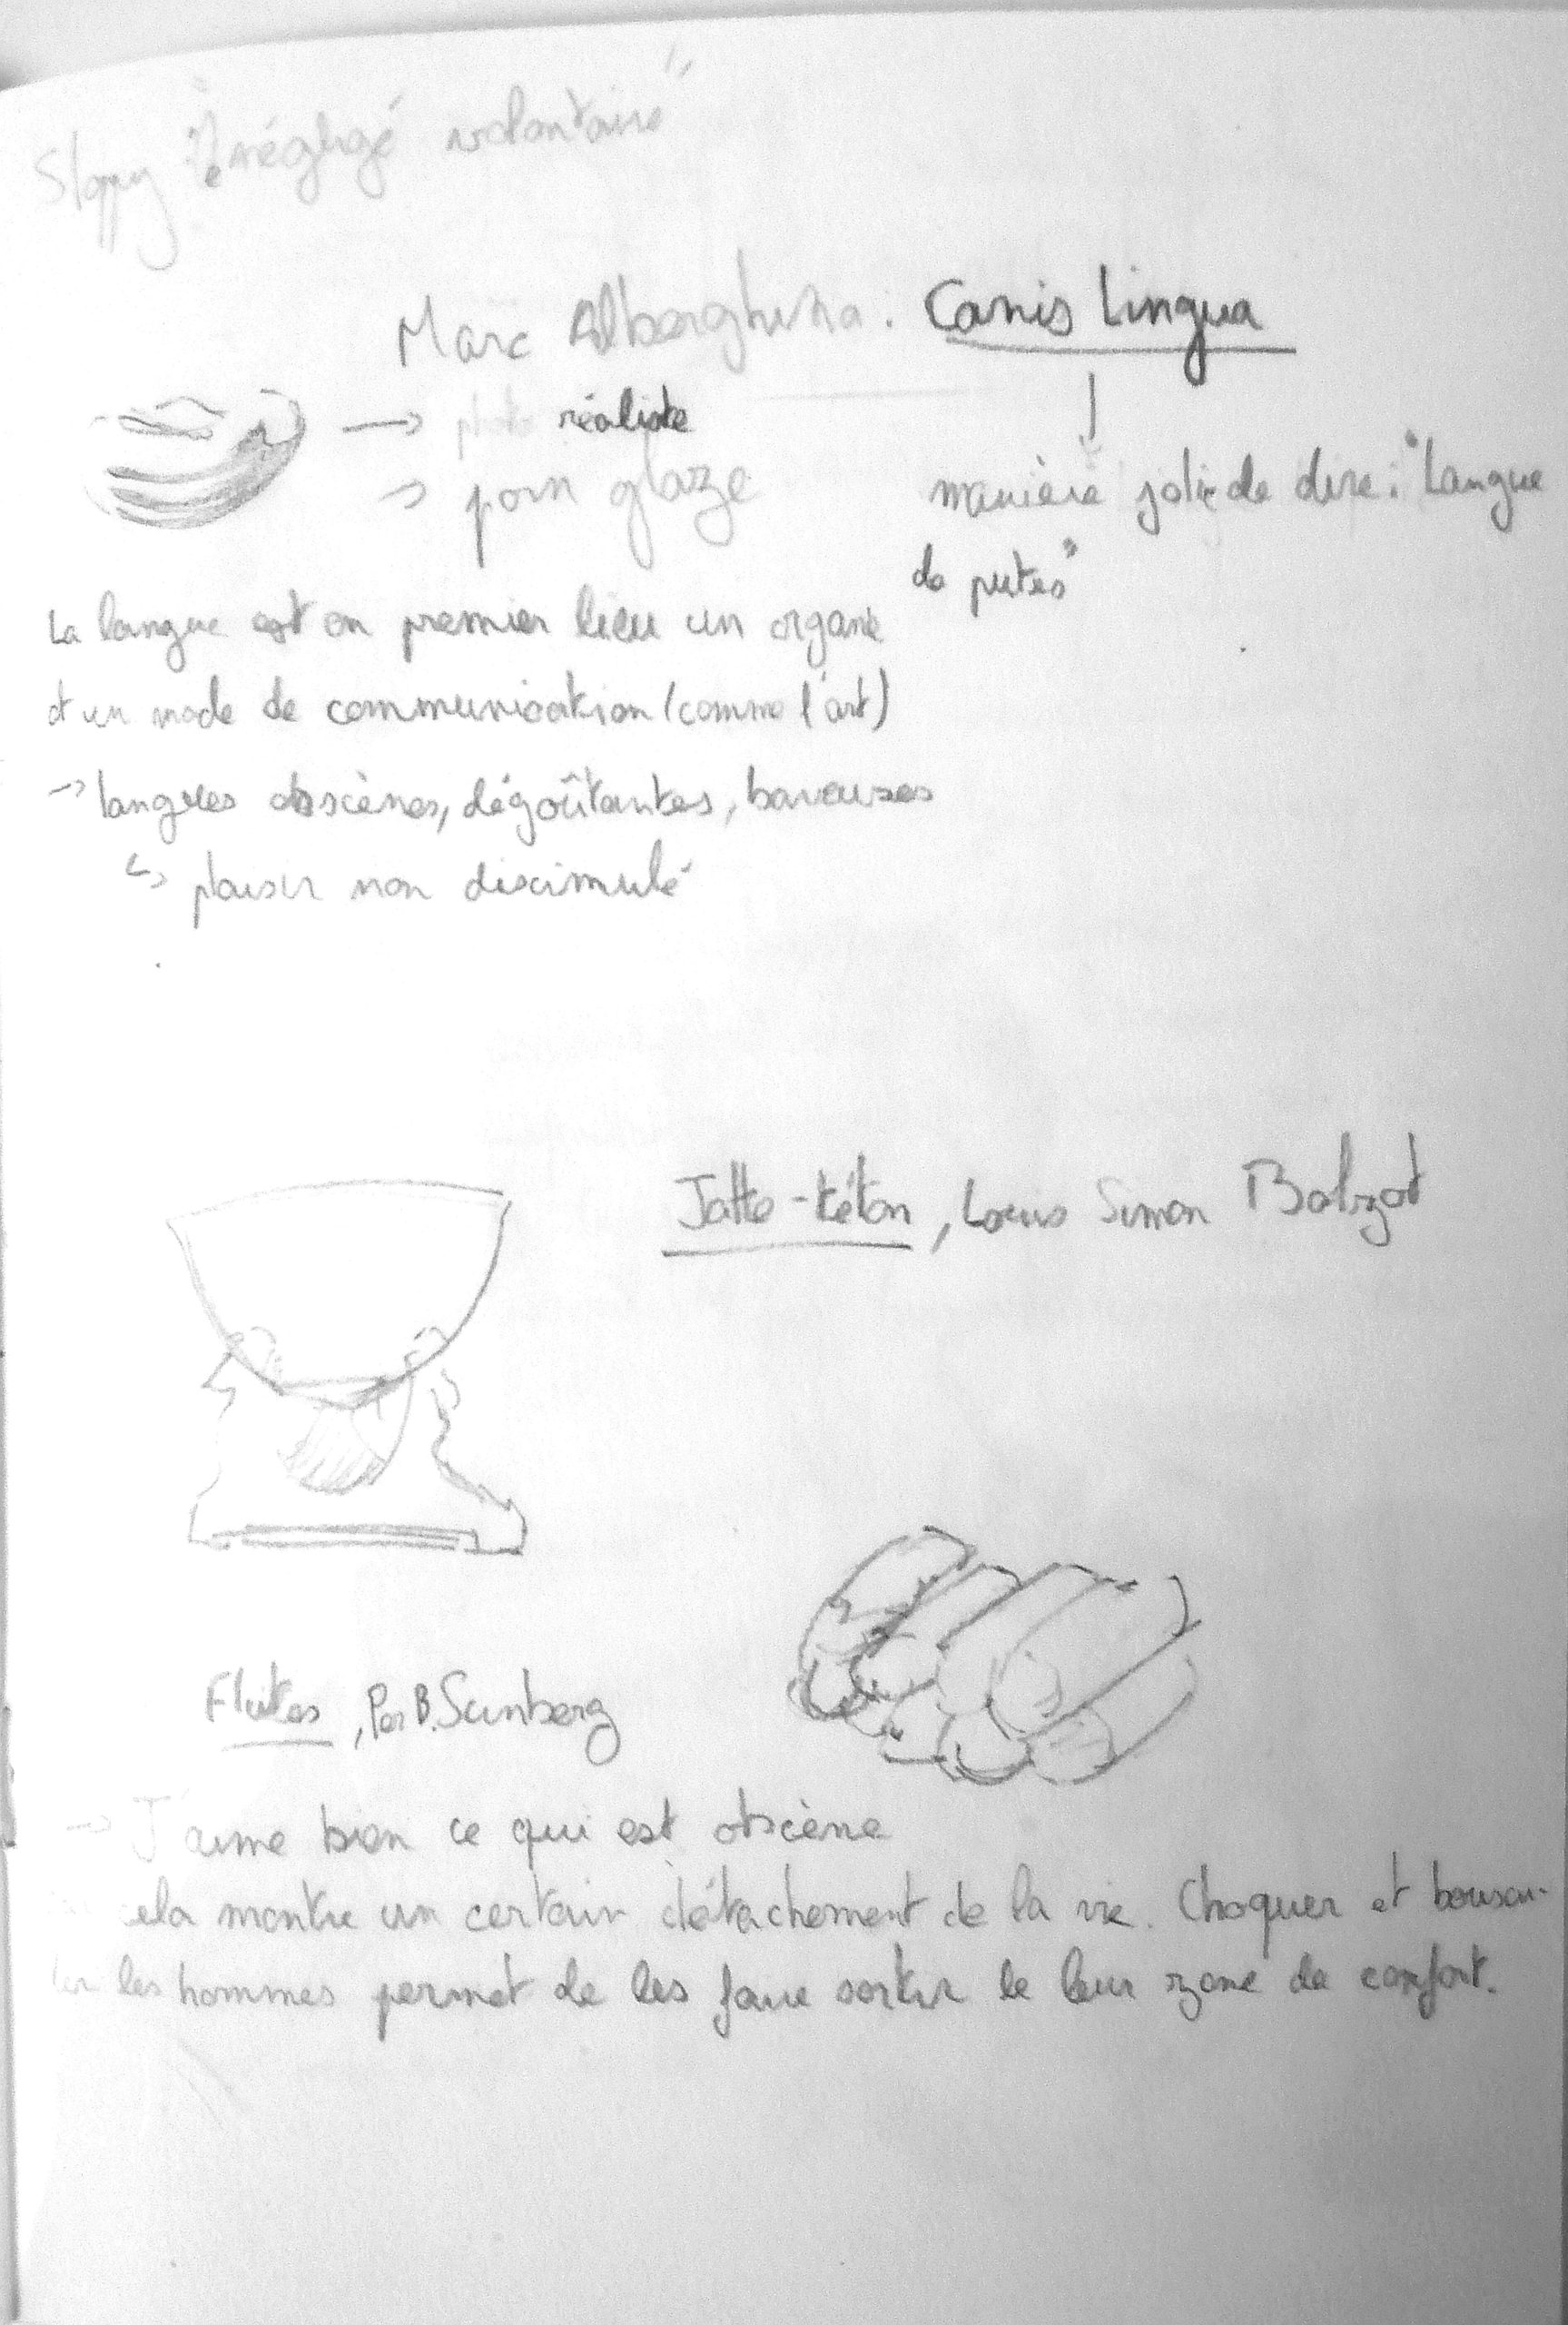 Sloppy : "négligé volontaire"
Marc Alberghina : Canis Lingua
→ photo réaliste
→ porn glaze
manière jolie de dire : "Langue
de putes"
La langue est en premier lieu un organe
et un mode de communication (comme l'art)
→ langues obscènes, dégoûtantes, baveuses
↳ plaisir non discimulé
Jatte-téton, Louis Simon Boizot
Flutes, Per B. Sunberg
→ J'aime bien ce qui est obscène
cela montre un certain détachement de la vie. Choquer et bouscu-
ler les hommes permet de les faire sortir le leur zone de confort.